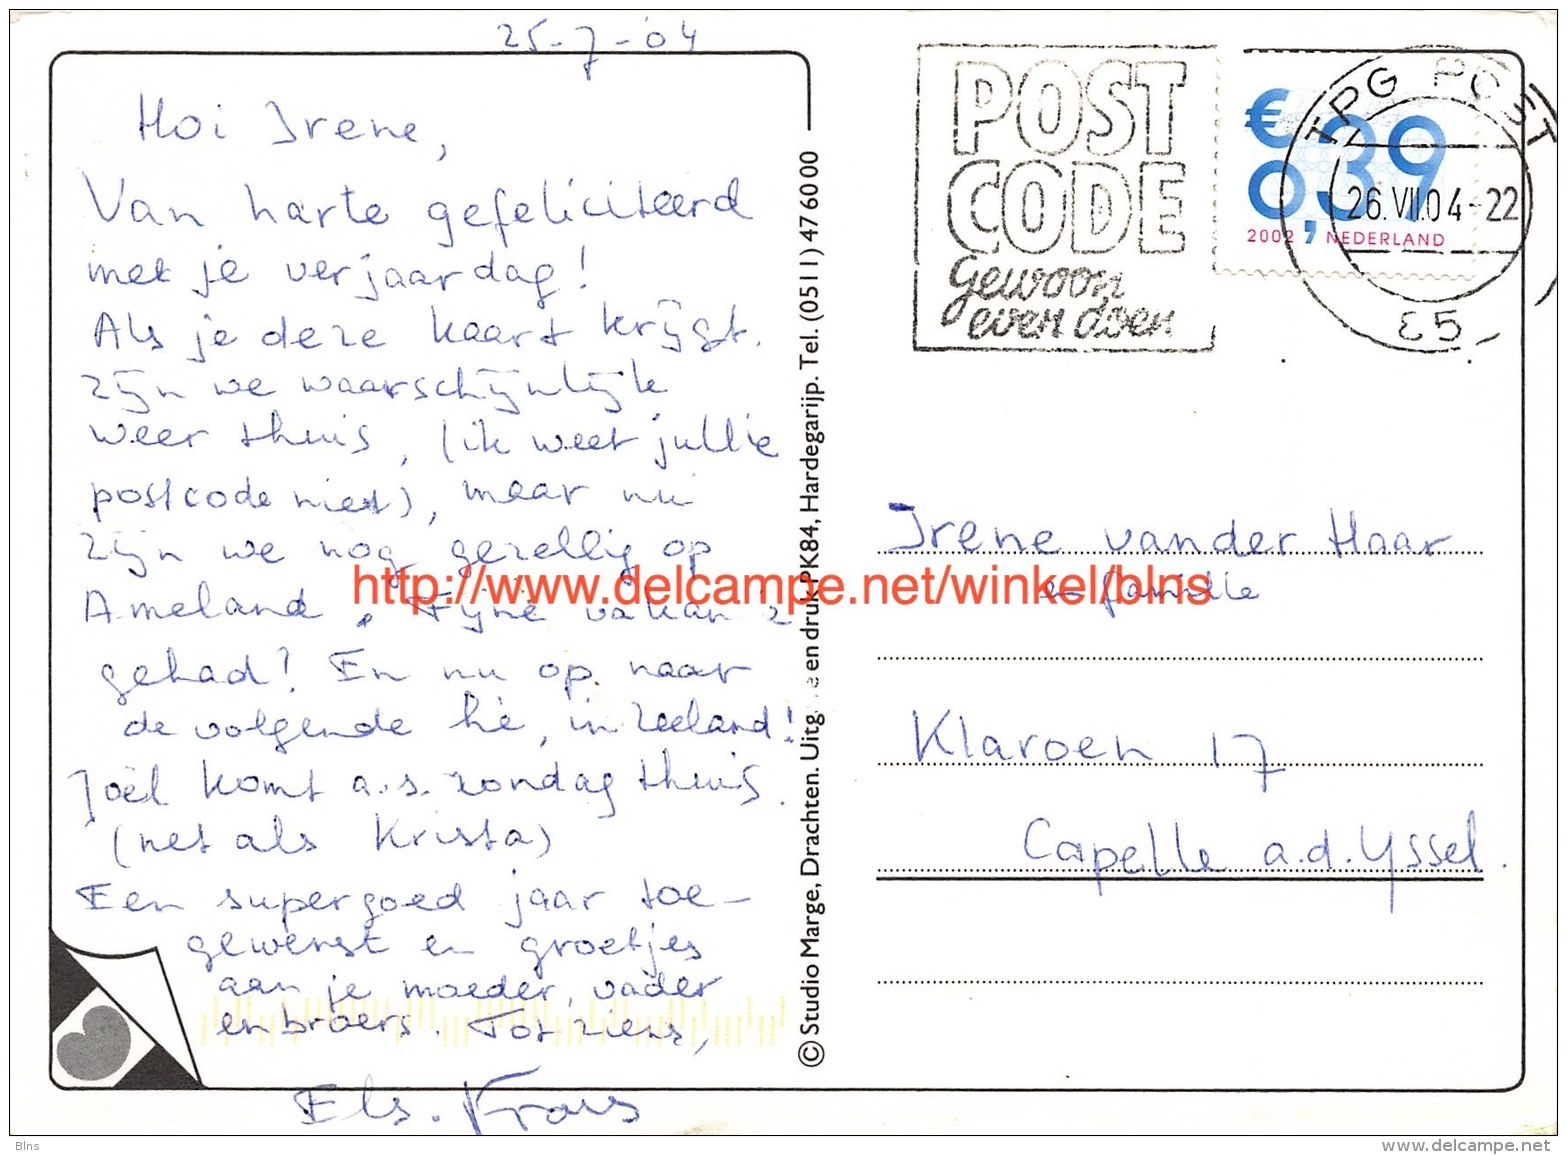 25-7-'04
Hoi Irene,
Van harte gefeliciteerd
met je verjaardag!
Als je deze kaart krijgt,
zijn we waarschijnlijk
weer thuis, (ik weet jullie
postcode niet), maar nu
zijn we nog gezellig op
Ameland. Fijne vakan
gehad? En nu op naar
de volgende hè, in Zeeland!
Joël komt a.s. zondag thuis.
(net als Krista)
Een supergoed jaar toe-
gewenst en groetjes
aan je moeder, vader
en broers. Tot ziens,
Els.
© Studio Marge, Drachten. Uitg en druk PK84, Hardegarijp. Tel. (0511) 4760 00
POST
CODE
gewoon
even doen
€
0,39
2002 NEDERLAND
TPG POST
26.VII.04-22
Irene van der Haar
en familie
Klaroen 17
Capelle a.d. Yssel.
http://www.delcampe.net/winkel/blns
Blns
www.delcampe.net